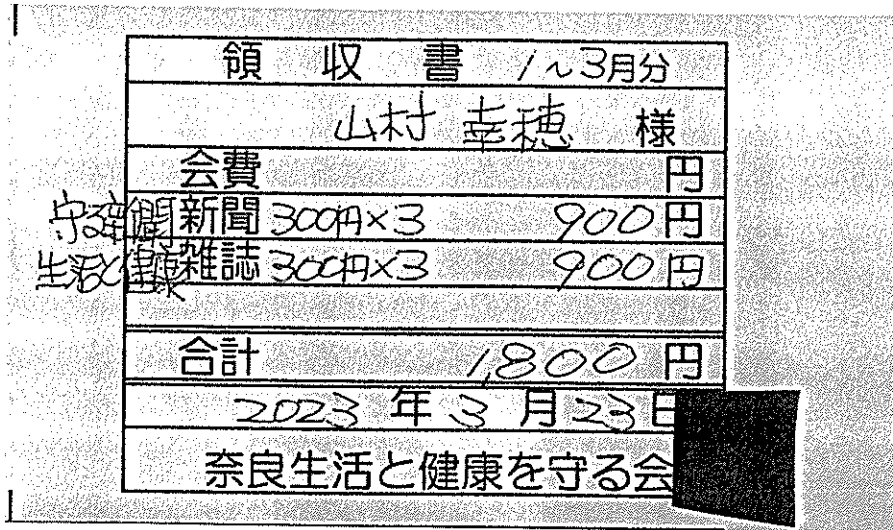 領収書 1~3月分
山村 幸穂 様
会費 円
守る新聞 新聞 300円×3 900円
生活と健康 雑誌 300円×3 900円
合計 1,800円
2023年3月23日
奈良生活と健康を守る会